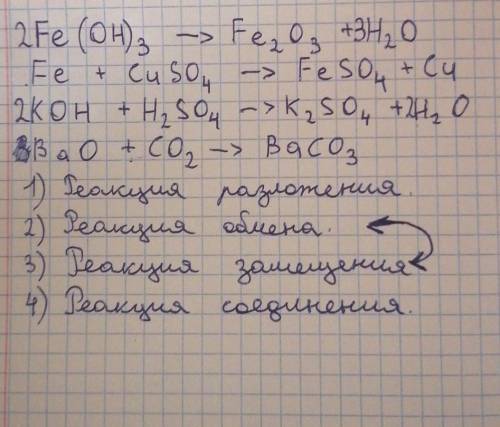 2Fe(OH)₃ —> Fe₂O₃ + 3H₂O
Fe + CuSO₄ —> FeSO₄ + Cu
2KOH + H₂SO₄ —> K₂SO₄ + 2H₂O
BaO + CO₂ —> BaCO₃
1) Реакция разложения.
2) Реакция обмена.
3) Реакция замещения
4) Реакция соединения.